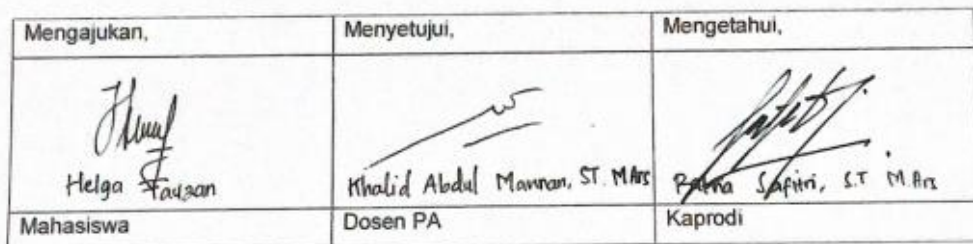 Mengajukan,
Menyetujui,
Mengetahui,
Helga Fauzan
Khalid Abdul Mannan, ST. MArs
Ratna Safitri, S.T M.Ars
Mahasiswa
Dosen PA
Kaprodi